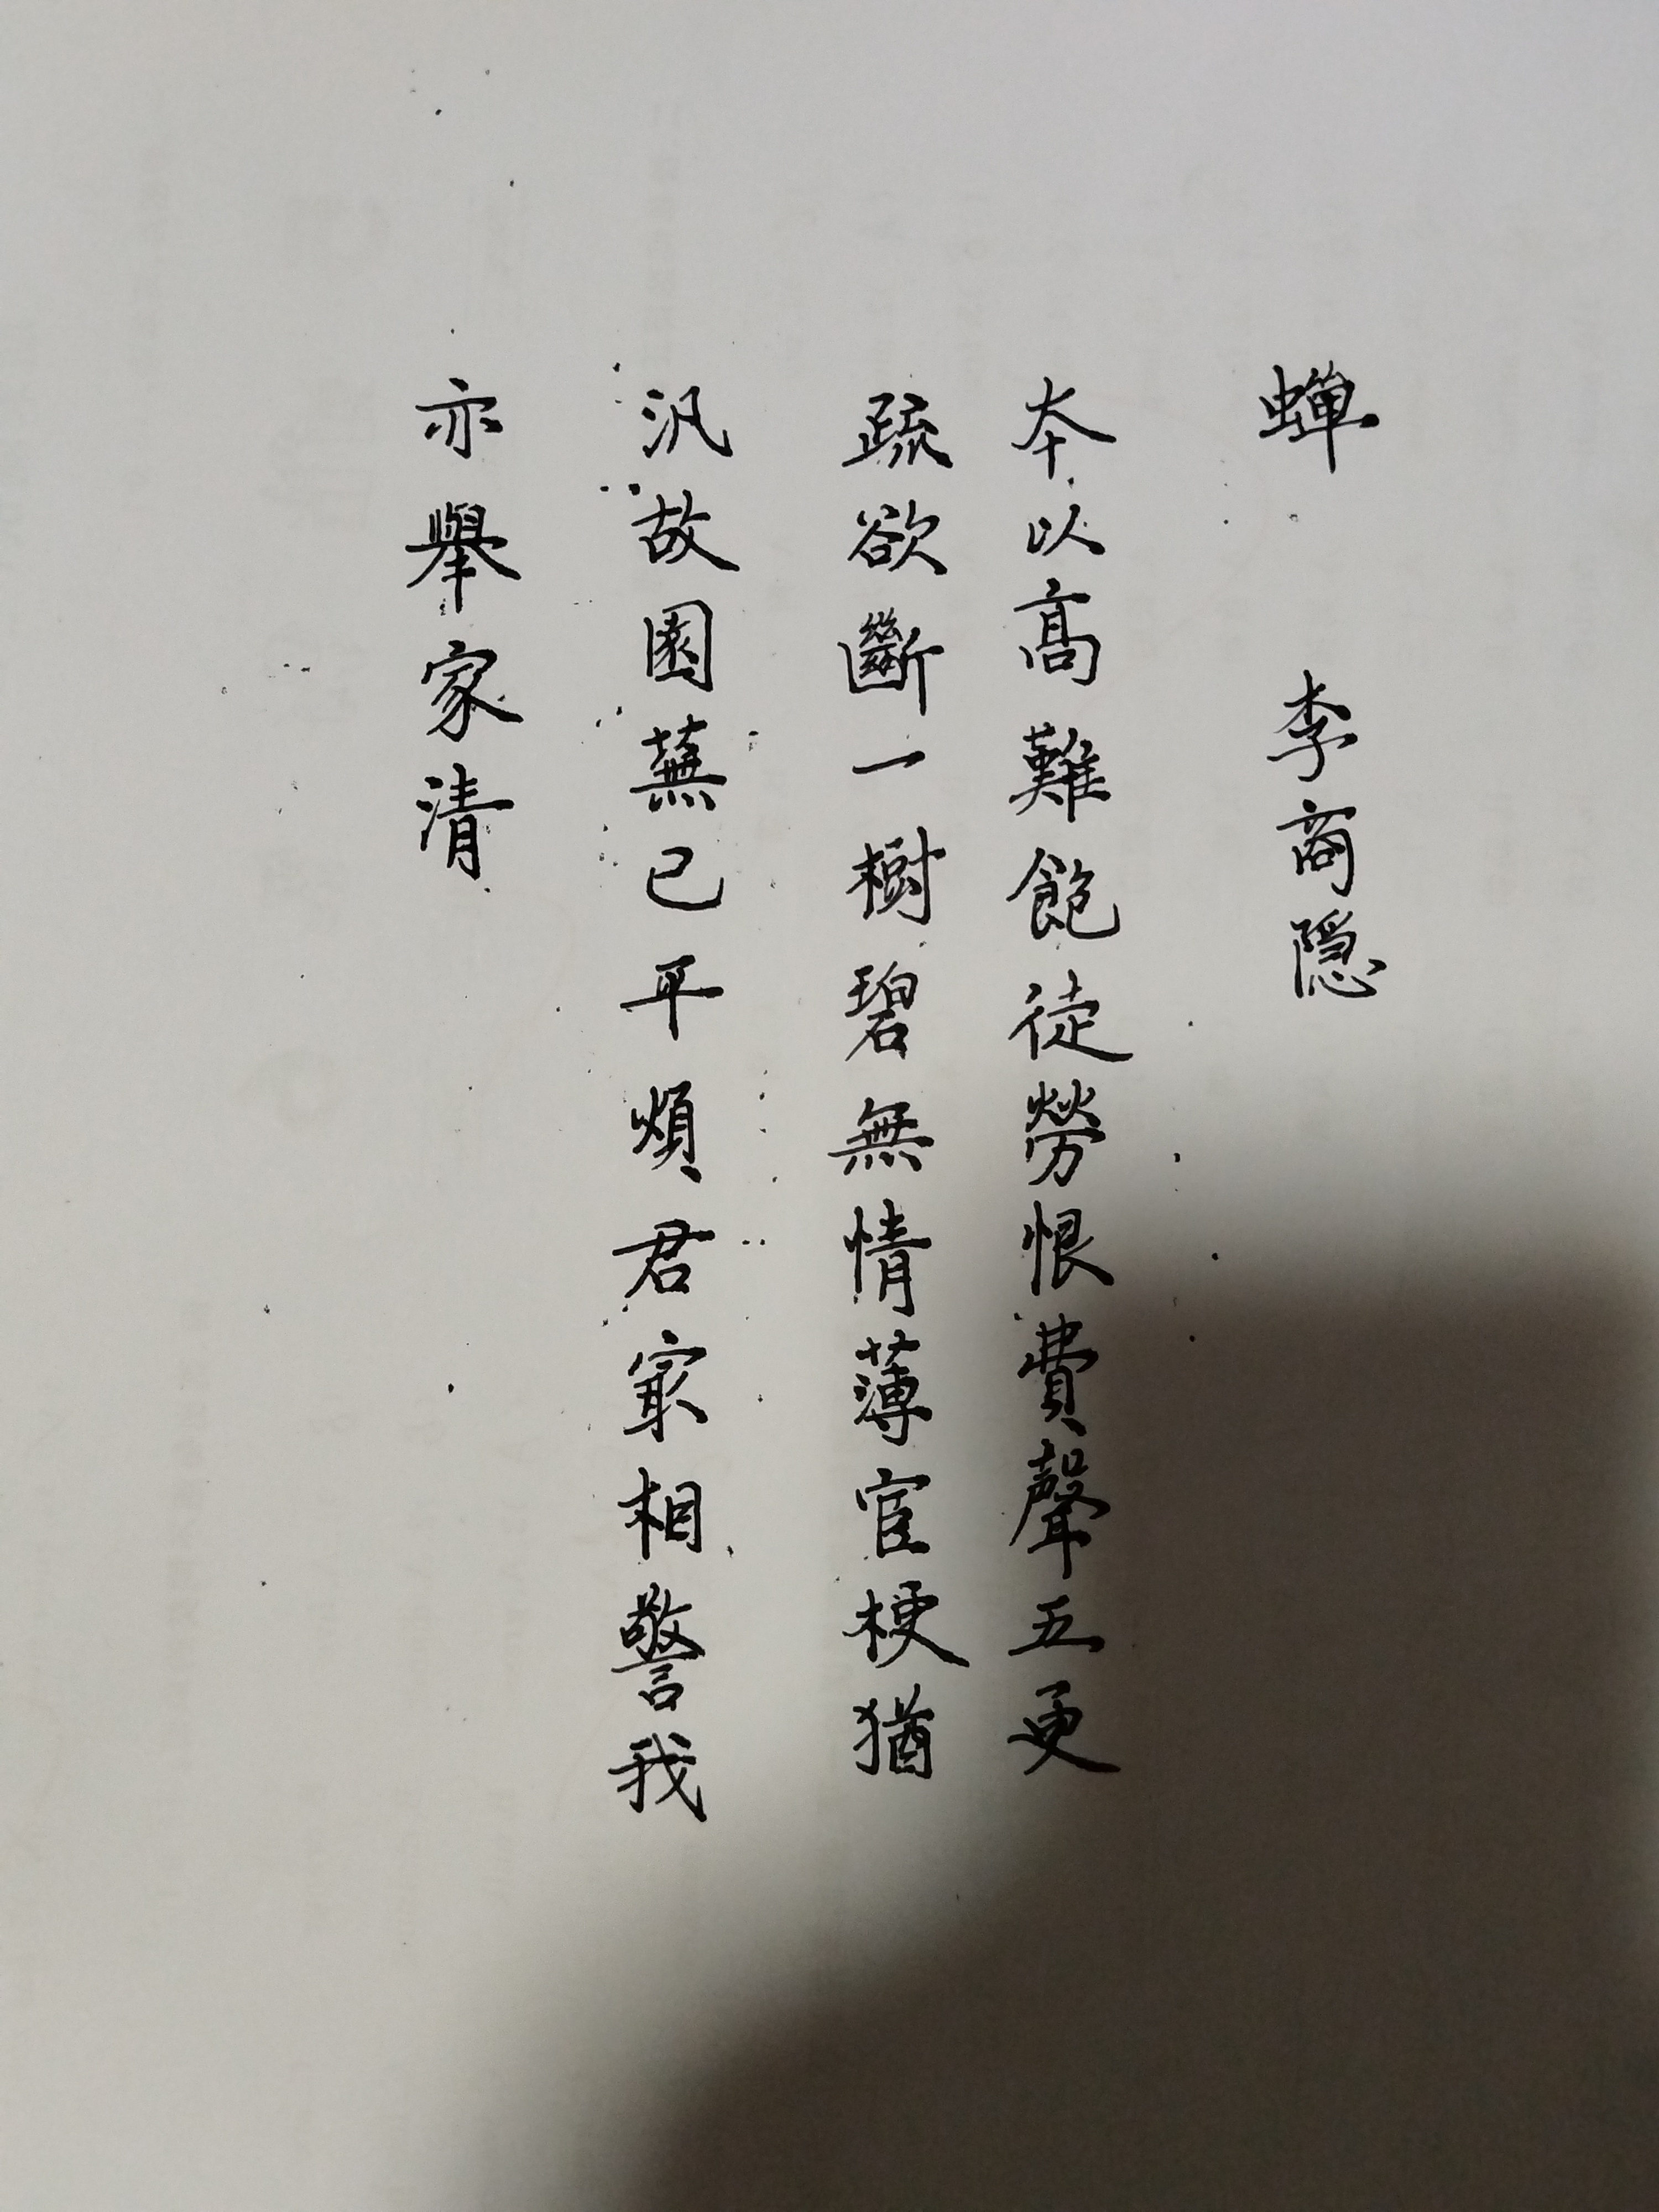 蟬 李商隱
本以高難飽徒勞恨費聲五更
疏欲斷一樹碧無情薄宦梗猶
汎故園蕪已平煩君冣相警我
亦舉家清